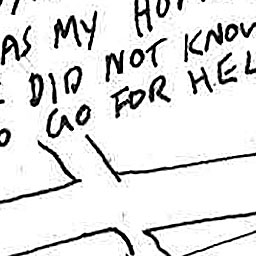 AS MY
DID NOT KNOW
GO FOR HEL